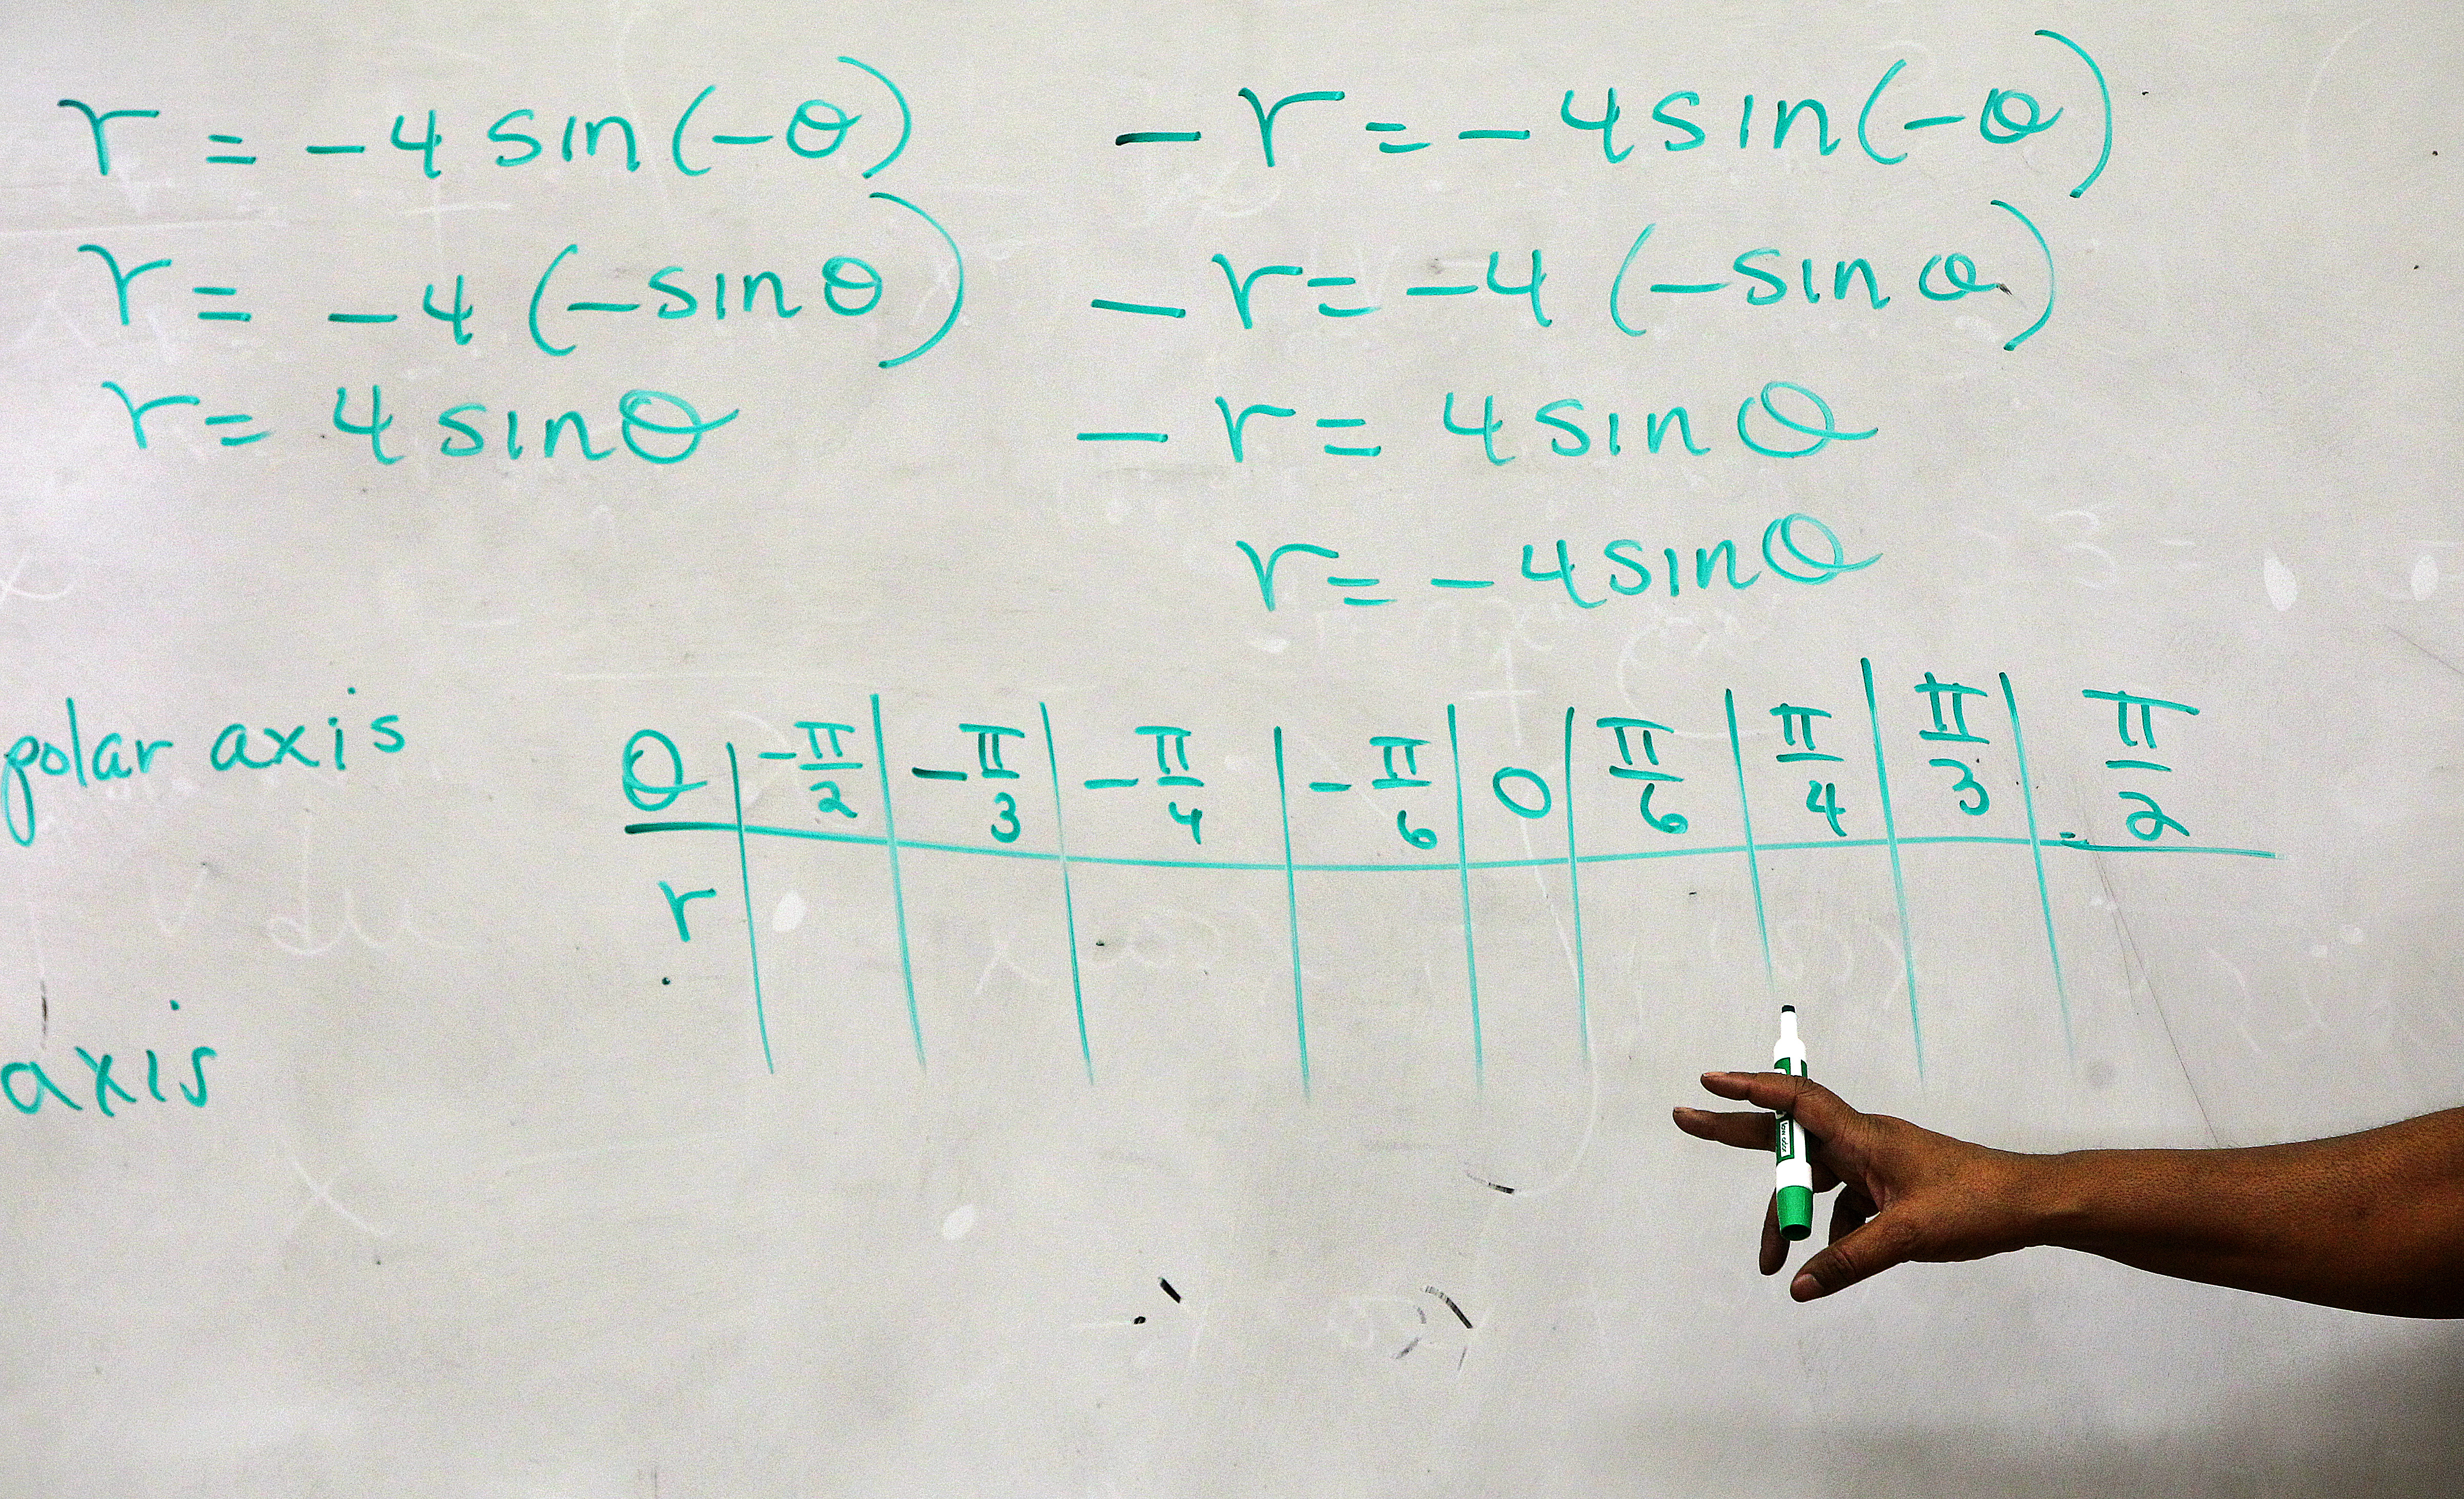 r = -4 sin(-θ)
r = -4 (-sin θ)
r = 4 sin θ
-r = -4 sin(-θ)
-r = -4 (-sin θ)
-r = 4 sin θ
r = -4 sin θ
polar axis
axis
θ | -π/2 | -π/3 | -π/4 | -π/6 | 0 | π/6 | π/4 | π/3 | π/2
r
low odor